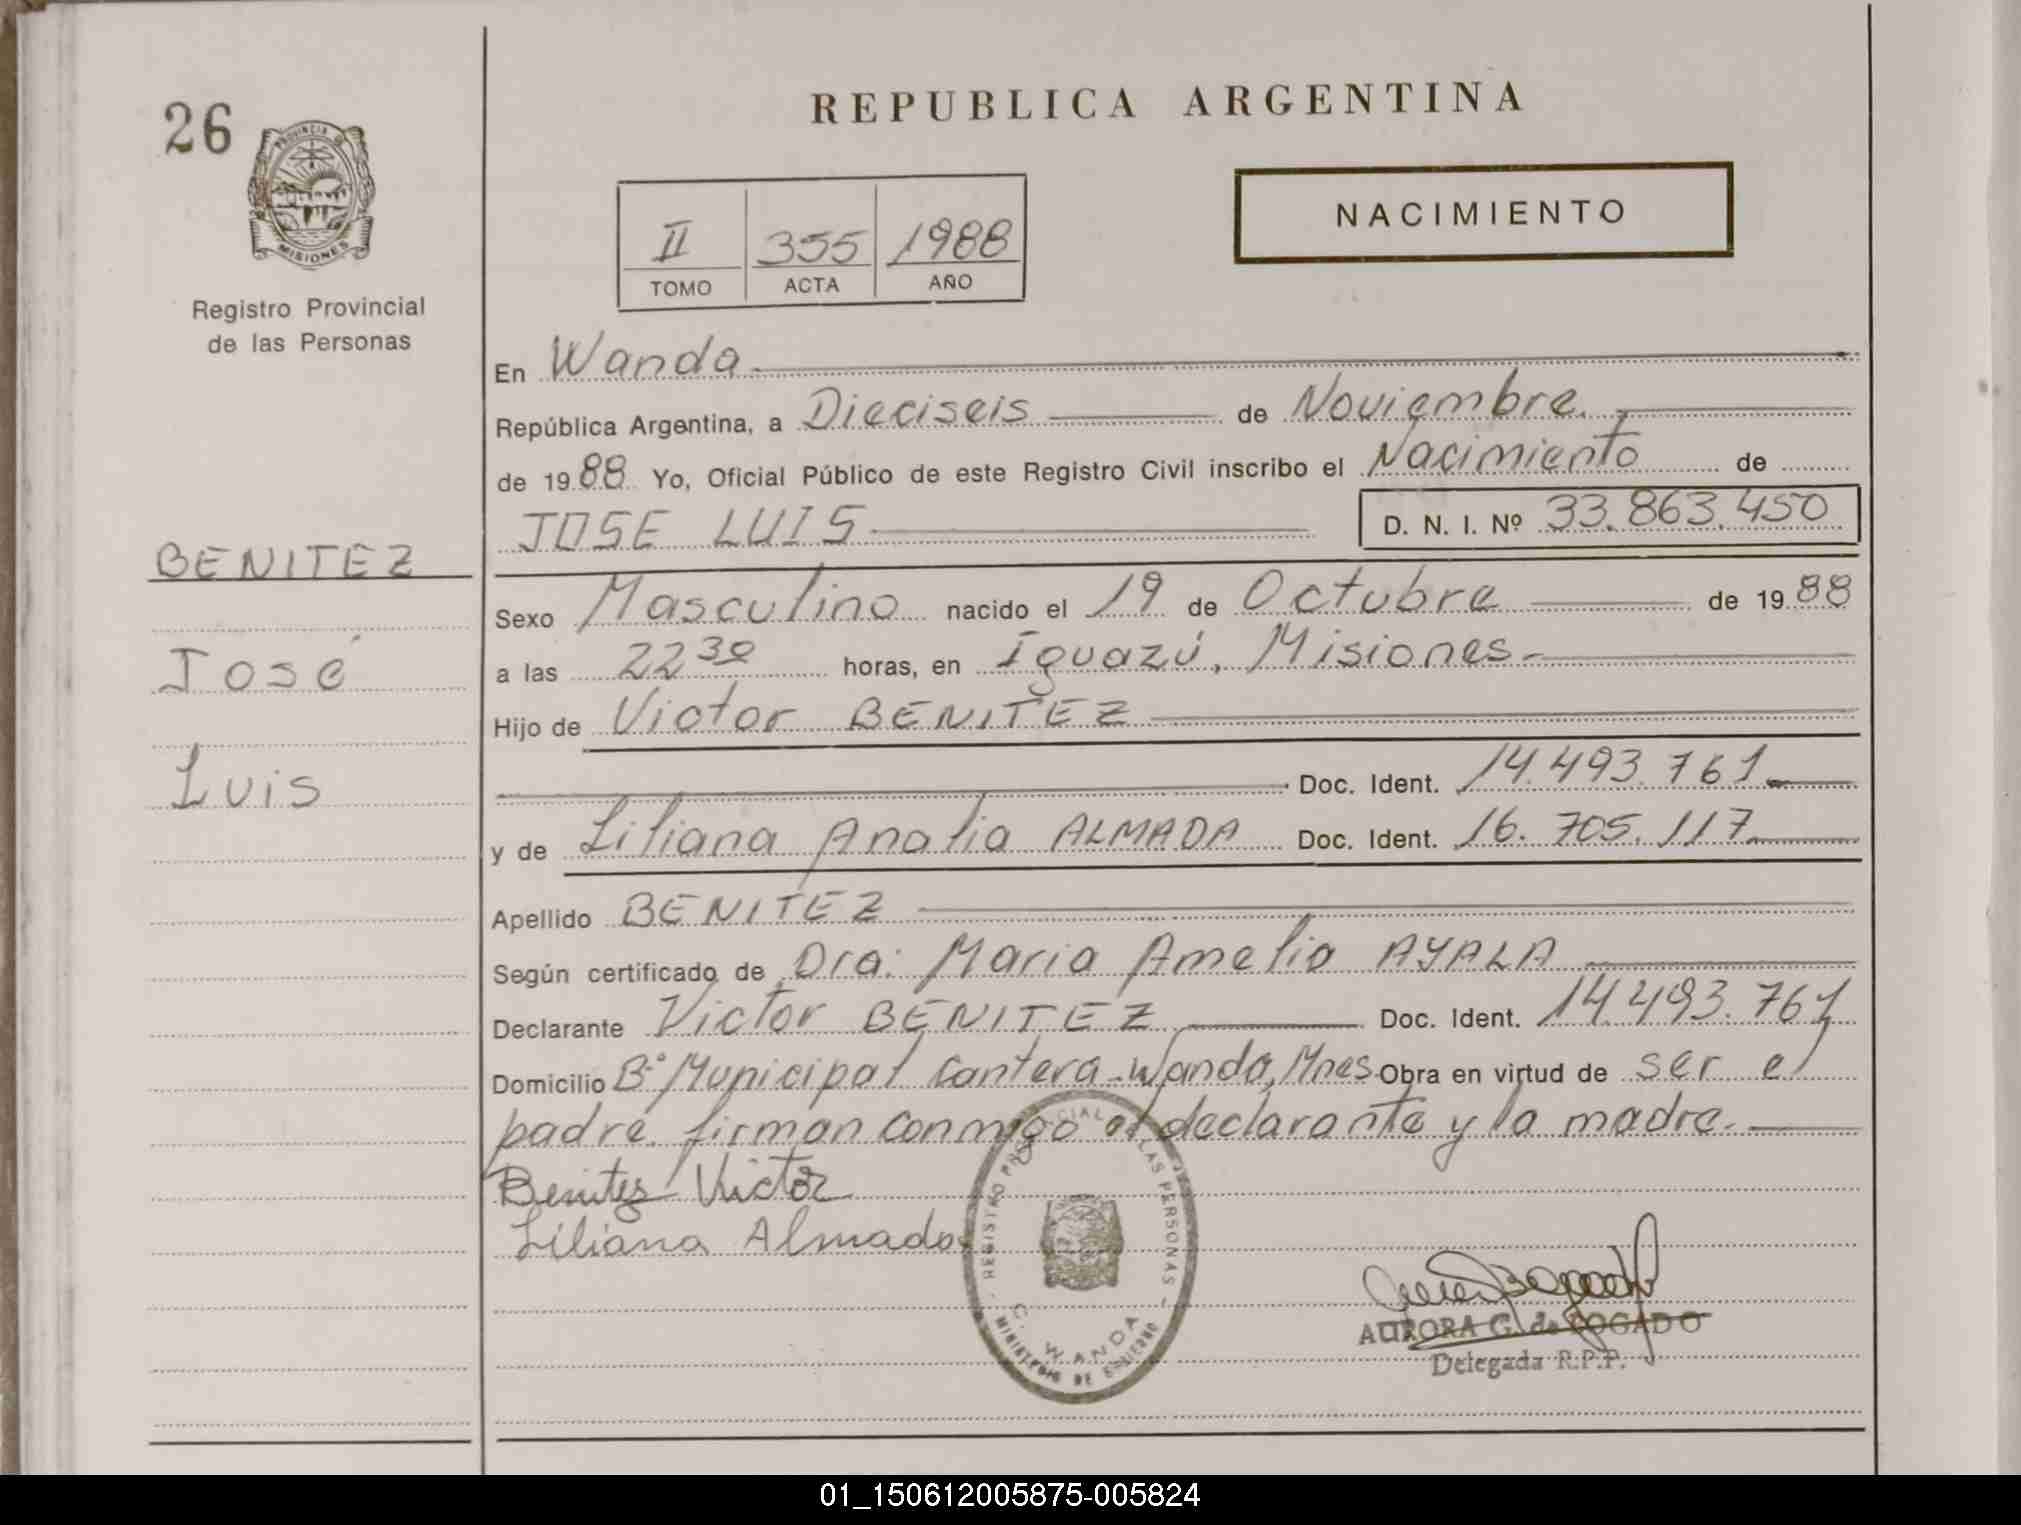 26
PROVINCIA DE
MISIONES
Registro Provincial
de las Personas
BENITEZ
José
Luis
REPUBLICA ARGENTINA
NACIMIENTO
II 355 1988
TOMO ACTA AÑO
En Wanda
República Argentina, a Dieciseis de Noviembre
de 1988 Yo, Oficial Público de este Registro Civil inscribo el Nacimiento de
JOSE LUIS D. N. I. Nº 33.863.450
Sexo Masculino nacido el 19 de Octubre de 1988
a las 22 30 horas, en Iguazú, Misiones
Hijo de Victor BENITEZ
Doc. Ident. 14.493.761
y de Liliana Analia ALMADA Doc. Ident. 16.705.117
Apellido BENITEZ
Según certificado de Dra: Maria Amelia AYALA
Declarante Victor BENITEZ Doc. Ident. 14.493.761
Domicilio Bº Municipal Cantera-Wanda, Mnes Obra en virtud de ser el
padre. firman conmigo el declarante y la madre.
Benitez Victor
Liliana Almada
REGISTRO PROVINCIAL DE LAS PERSONAS
C. WANDA
MINISTERIO DE GOBIERNO
AURORA G. de BOGADO
Delegada R.P.P.
01_150612005875-005824